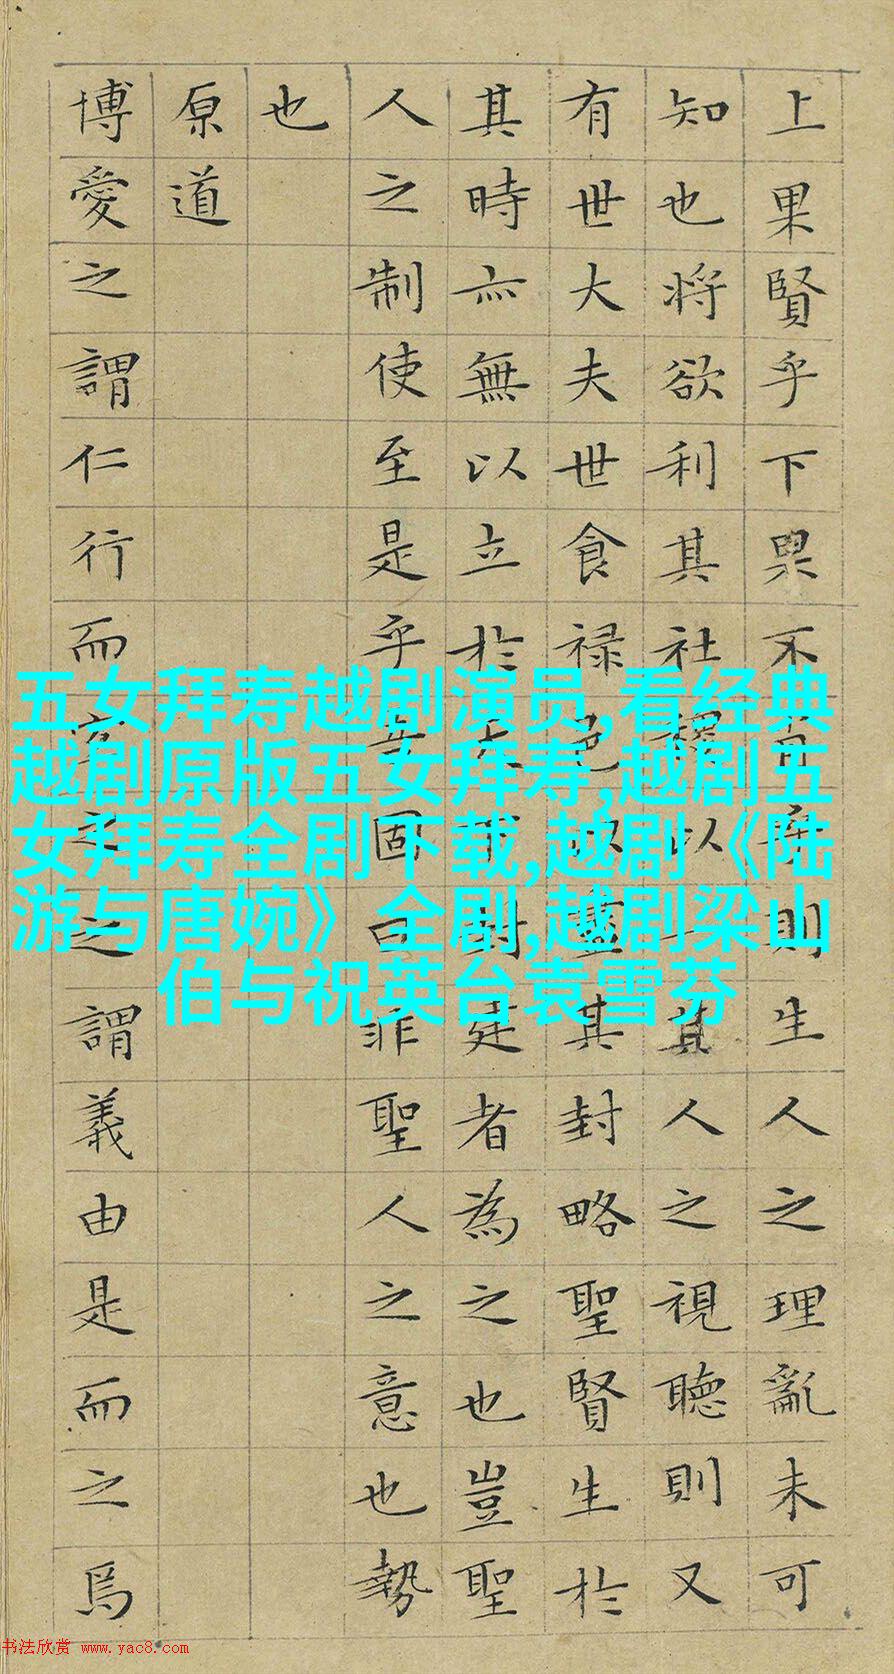 上果賢乎下果不肖乎則生人之理亂未可
知也將欲利其社稷以一其人之視聽則又
有世大夫世食禄邑以盡其封略聖賢生於
其時亦無以立於天下封建者為之也豈聖
人之制使至是乎吾固曰非聖人之意也勢
也
原道
博愛之謂仁行而宜之之謂義由是而之焉
五女拜寿越剧演员,看经典
越剧原版五女拜寿,越剧五
女拜寿全剧下载,越剧《陆
游与唐婉》全剧,越剧梁山
伯与祝英台袁雪芬
书法欣赏 www.yac8.com